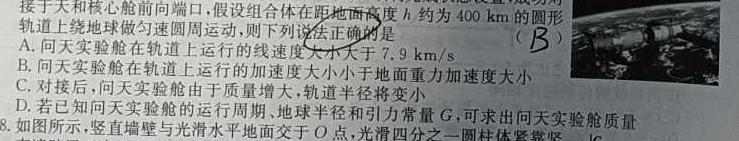 接于天和核心舱前向端口,假设组合体在距地面高度 h 约为 400 km 的圆形
轨道上绕地球做匀速圆周运动,则下列说法正确的是 ( B )
A. 问天实验舱在轨道上运行的线速度大小大于 7.9 km/s
B. 问天实验舱在轨道上运行的加速度大小小于地面重力加速度大小
C. 对接后,问天实验舱由于质量增大,轨道半径将变小
D. 若已知问天实验舱的运行周期、地球半径和引力常量 G,可求出问天实验舱质量
8. 如图所示,竖直墙壁与光滑水平地面交于 O 点,光滑四分之一圆柱体紧靠竖